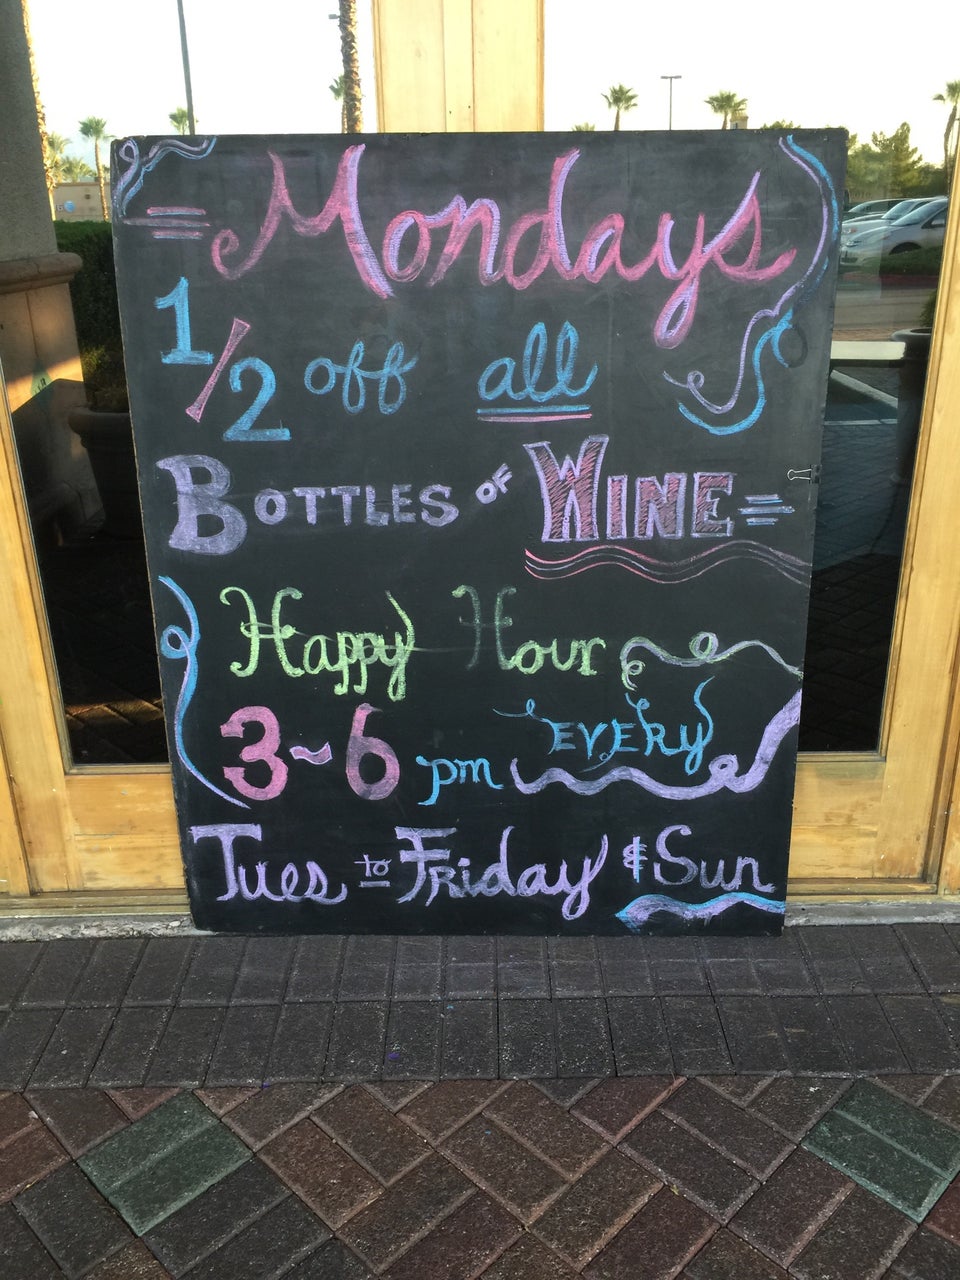 Mondays
1/2 off all
BOTTLES OF WINE
Happy Hour
3~6 pm EVERY
Tues to Friday & Sun